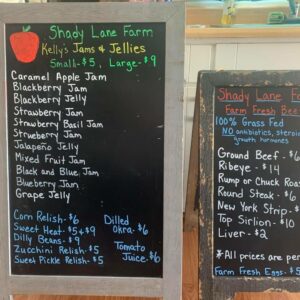 Shady Lane Farm
Kelly's Jams & Jellies
Small-$5, Large-$9
Caramel Apple Jam
Blackberry Jam
Blackberry Jelly
Strawberry Jam
Strawberry Basil Jam
Strawberry Jam
Jalapeño Jelly
Mixed Fruit Jam
Black and Blue Jam
Blueberry Jam
Grape Jelly
Corn Relish-$6
Sweet Heat-$5+$9
Dilly Beans-$9
Zucchini Relish-$5
Sweet Pickle Relish-$5
Dilled
Okra-$6
Tomato
Juice-$6
Shady Lane
Farm Fresh
100% Grass Fed
NO antibiotics,
growth hormones
Ground Beef-
Ribeye-$14
Rump or Chuck
Round Steak-$
New York Strip-
Top Sirloin-$10
Liver-$2
*All prices are
Farm Fresh Eggs-